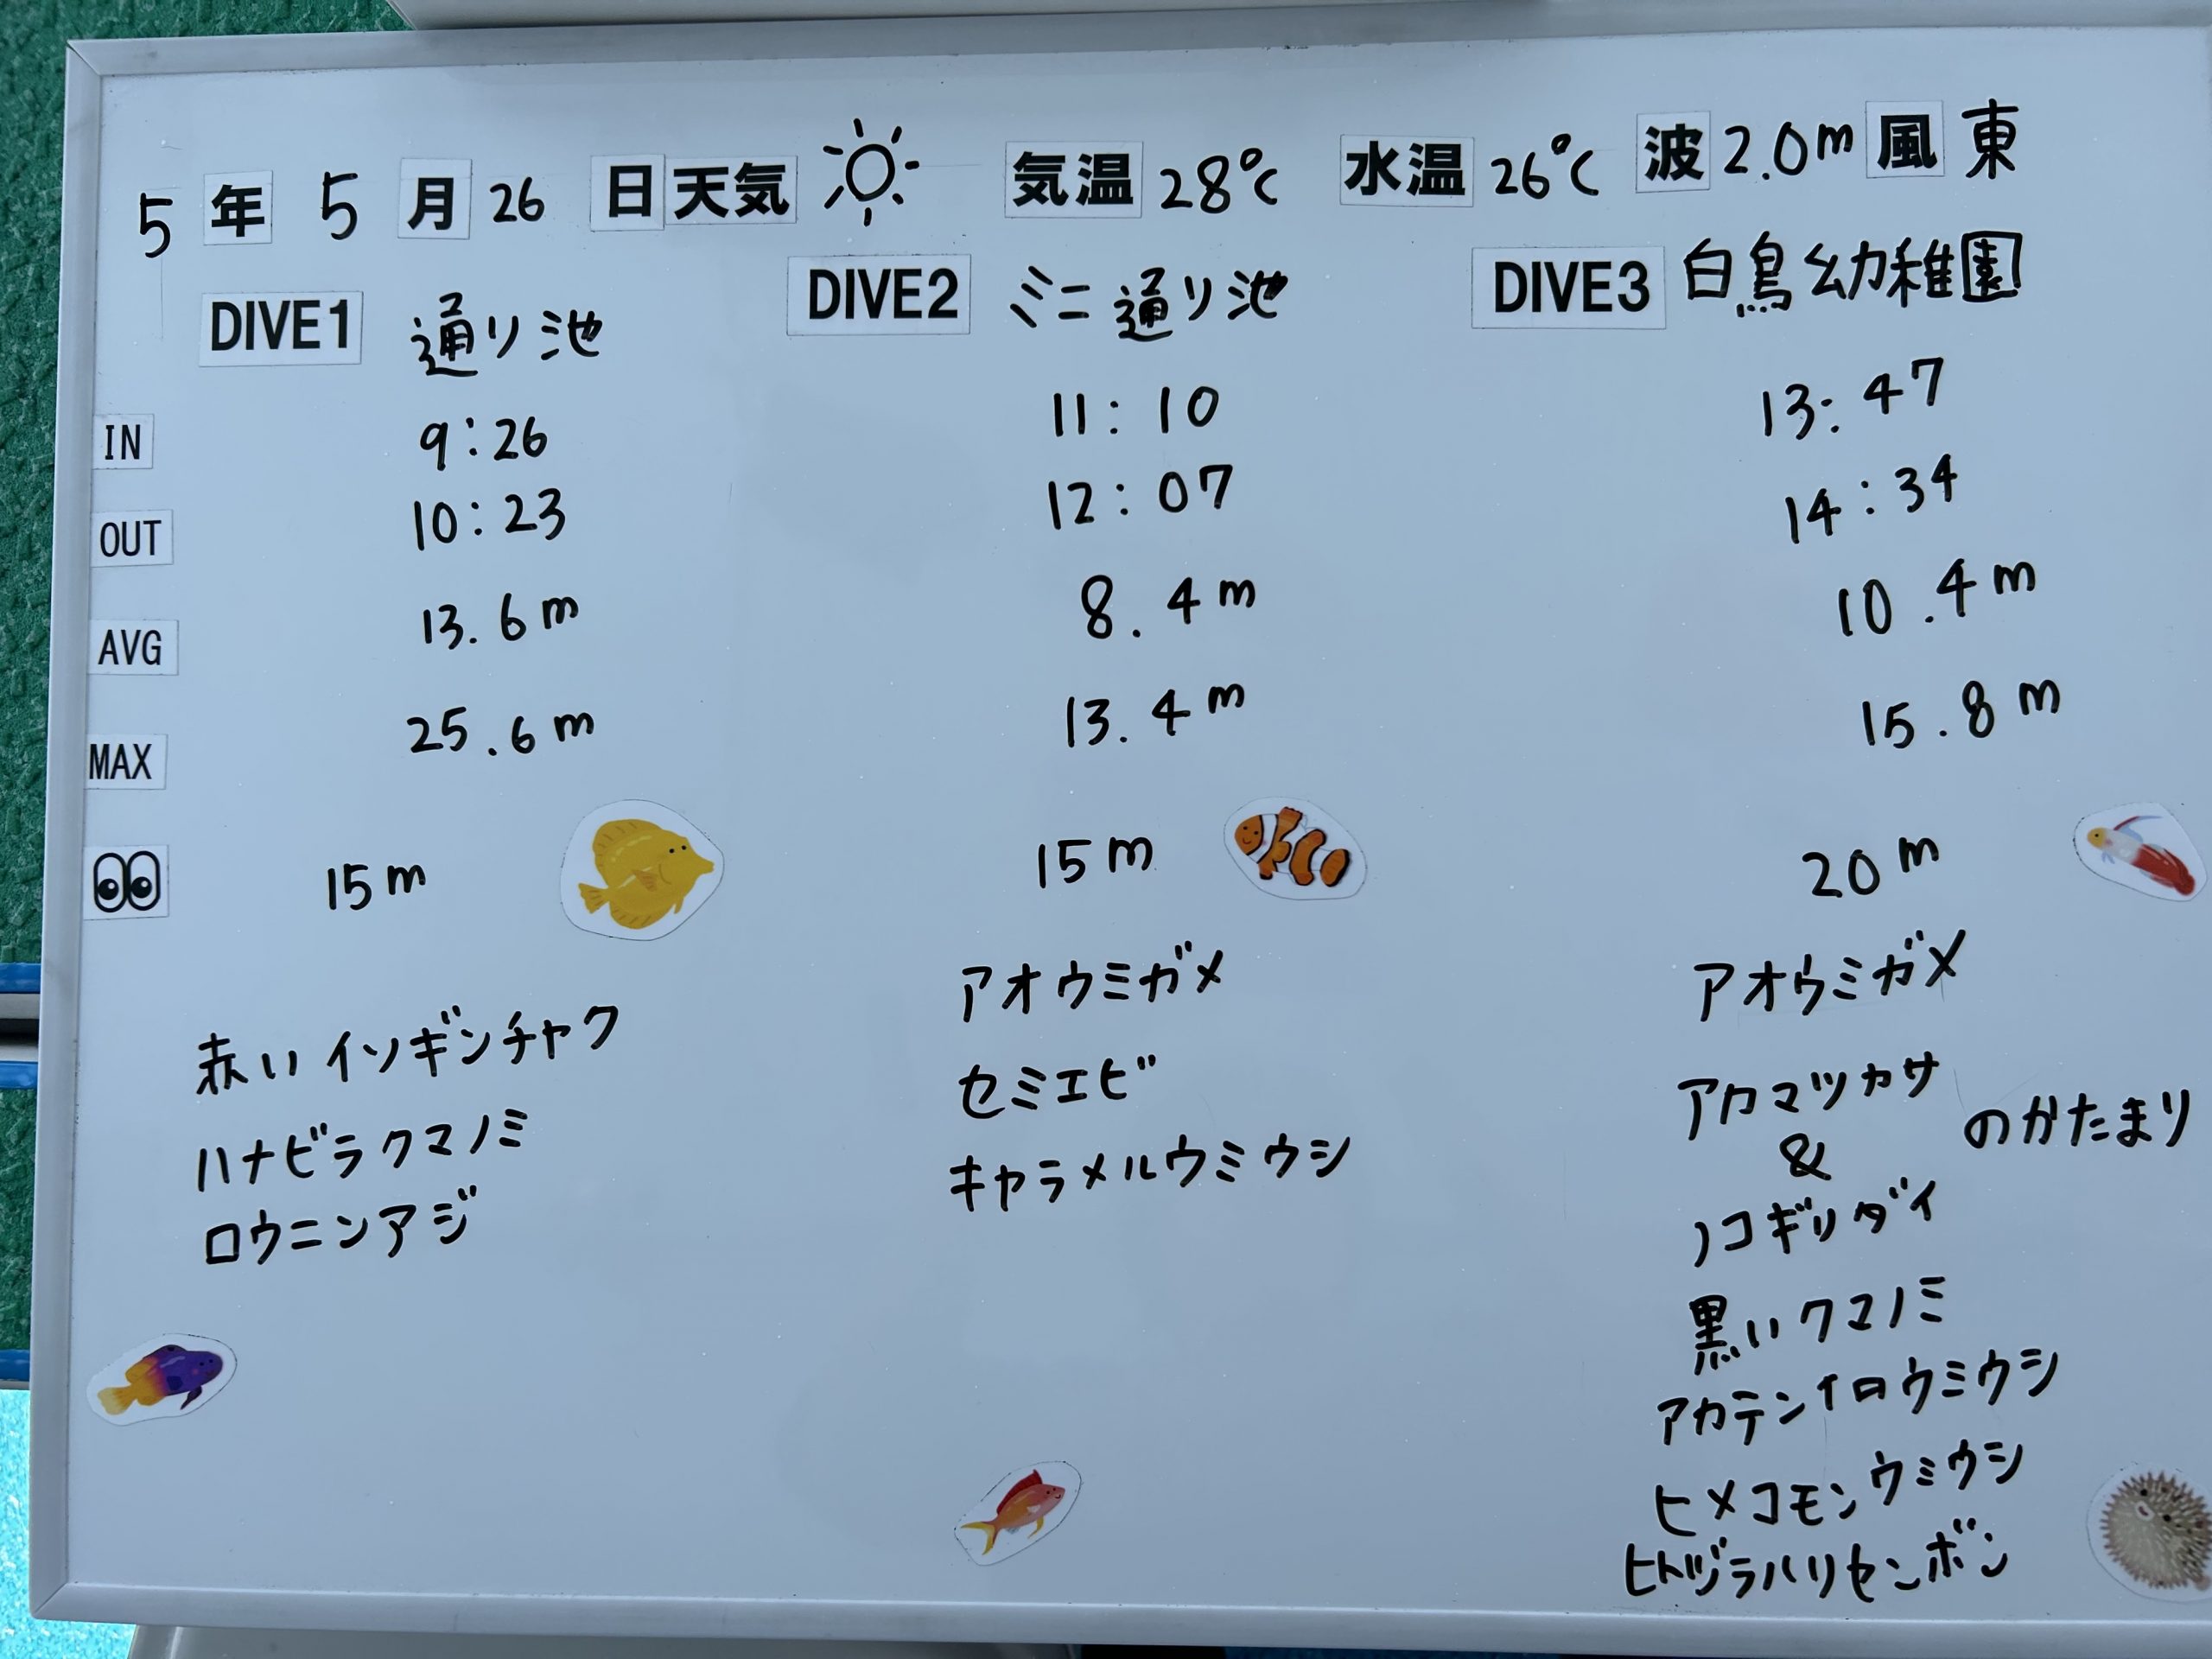 5 年 5 月 26 日 天気 気温 28℃ 水温 26℃ 波 2.0m 風 東
DIVE1 通り池 DIVE2 ミニ通り池 DIVE3 白鳥幼稚園
IN 9:26 11:10 13:47
OUT 10:23 12:07 14:34
AVG 13.6m 8.4m 10.4m
MAX 25.6m 13.4m 15.8m
15m 15m 20m
赤いイソギンチャク
ハナビラクマノミ
ロウニンアジ
アオウミガメ
セミエビ
キャラメルウミウシ
アオウミガメ
アカマツカサ
&
のかたまり
ノコギリダイ
黒いクマノミ
アカテンイロウミウシ
ヒメコモンウミウシ
ヒトヅラハリセンボン